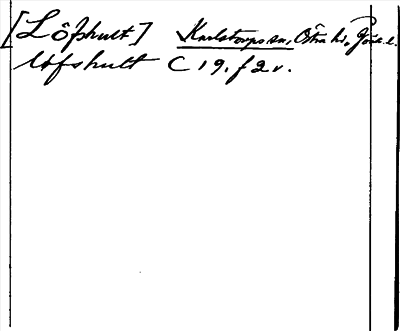 [Löfshult] Karlstorps sn, Östra hd, Jönk. l.
löfshult C 19. f 2 v.